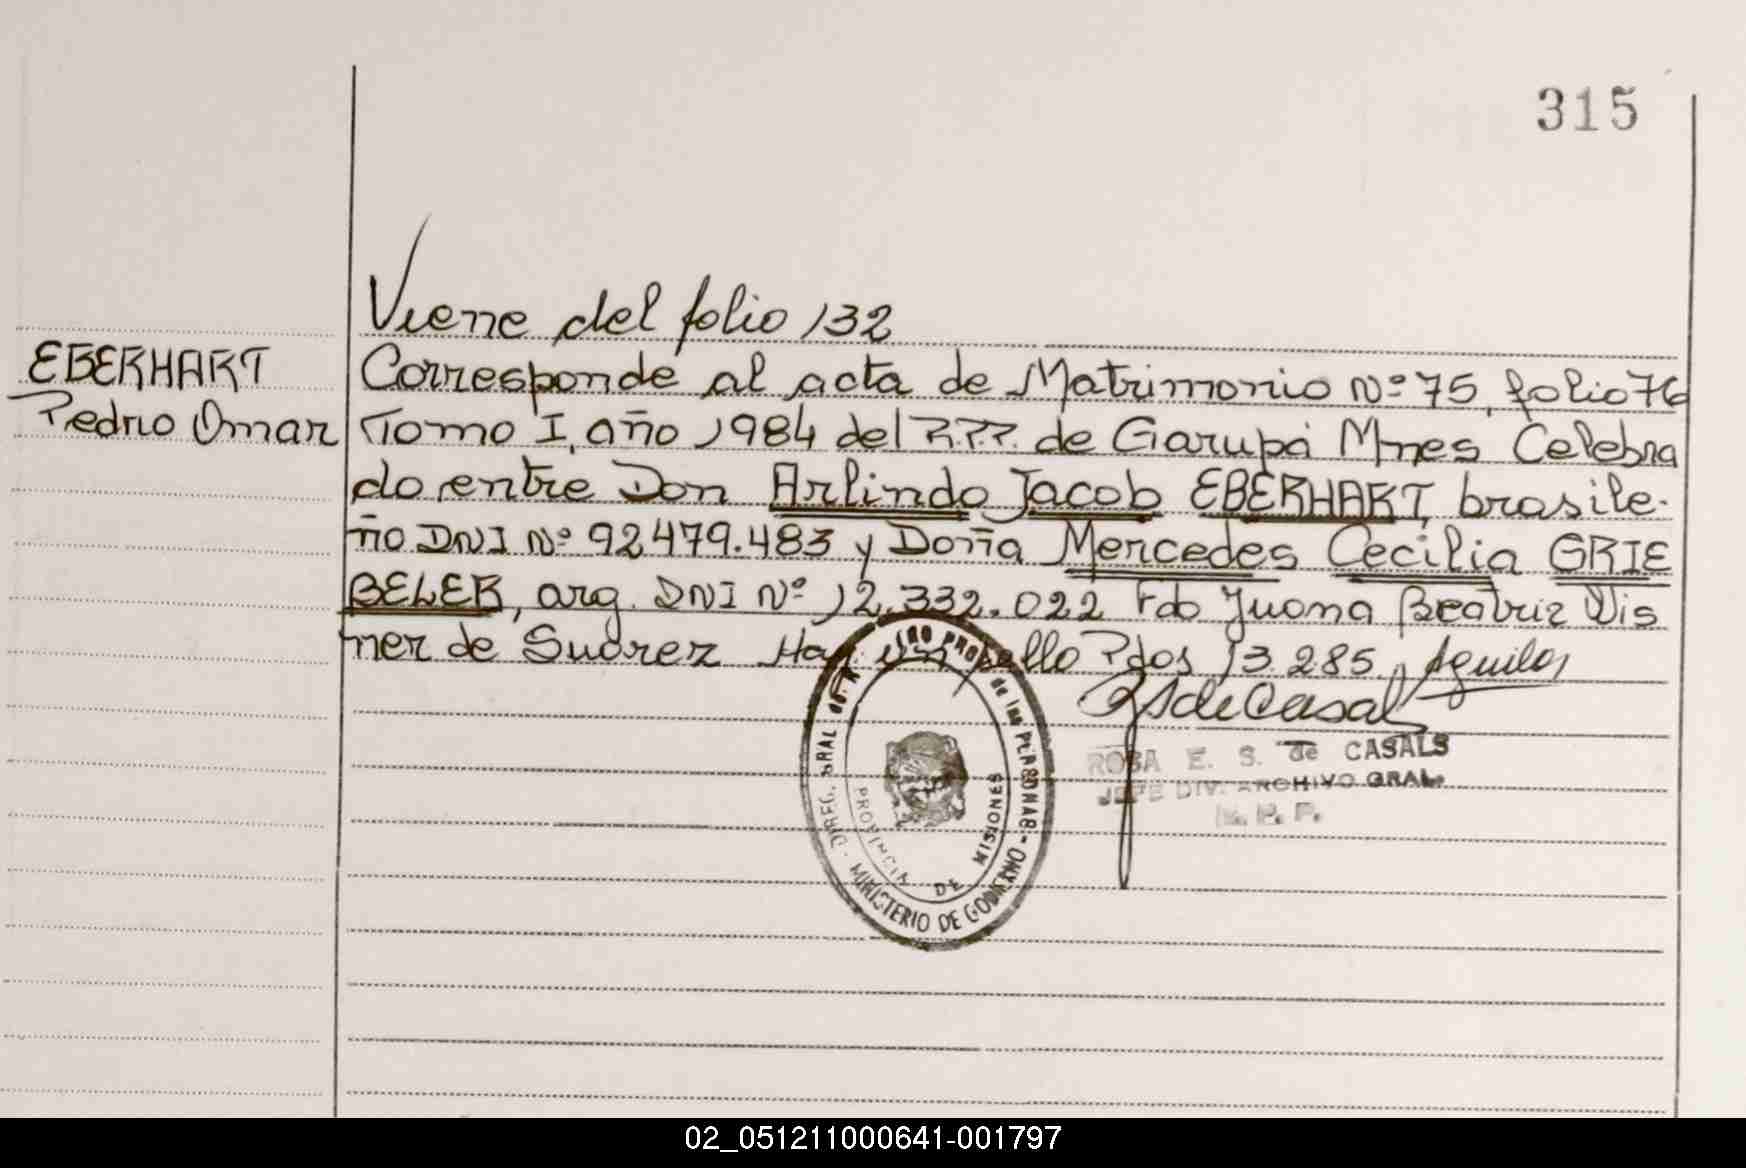 315
Viene del folio 132
EBERHART
Pedro Omar
Corresponde al acta de Matrimonio Nº 75, folio 76
Tomo I, año 1984 del R.P.P. de Garupá Mnes Celebra
do entre Don Arlindo Jacob EBERHART, brasile-
ño DNI Nº 92479.483 y Doña Mercedes Cecilia GRIE
BELER, arg. DNI Nº 12.332.022 Fdo Juana Beatriz Wis
ner de Suárez Hay un sello Pdos 13.285. Aguilar
RSdeCasals
ROSA E. S. de CASALS
JEFE DIV. ARCHIVO GRAL.
R. P. P.
DIREC. GRAL del R. PROV. de las PERSONAS
MINISTERIO DE GOBIERNO
PROVINCIA DE MISIONES
02_051211000641-001797